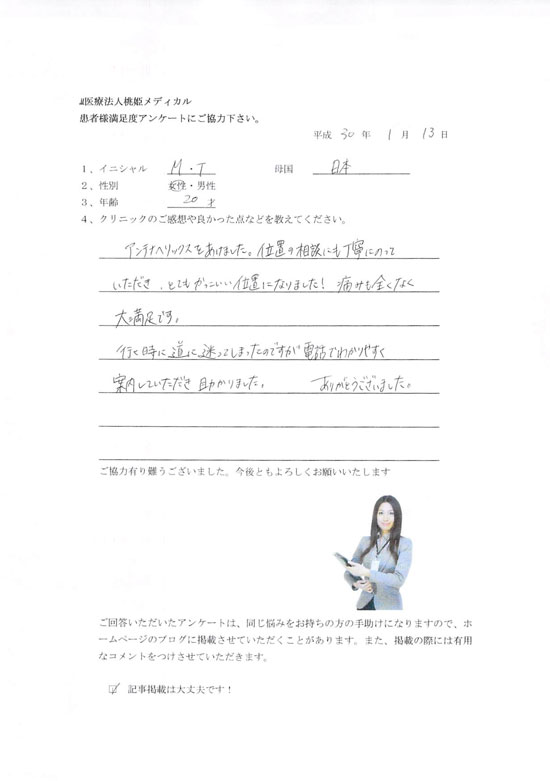 医療法人桃姫メディカル
患者様満足度アンケートにご協力下さい。
平成 30 年 1 月 13 日
1、イニシャル M・T 母国 日本
2、性別 女性・男性
3、年齢 20 才
4、クリニックのご感想や良かった点などを教えてください。
アンテナヘリックスをあけました。位置の相談にも丁寧にのって
いただき、とてもかっこいい位置になりました！ 痛みも全くなく
大満足です。
行く時に道に迷ってしまったのですが電話でわかりやすく
案内していただき助かりました。 ありがとうございました。
ご協力有り難うございました。今後ともよろしくお願いいたします
ご回答いただいたアンケートは、同じ悩みをお持ちの方の手助けになりますので、ホ
ームページのブログに掲載させていただくことがあります。また、掲載の際には有用
なコメントをつけさせていただきます。
記事掲載は大丈夫です！